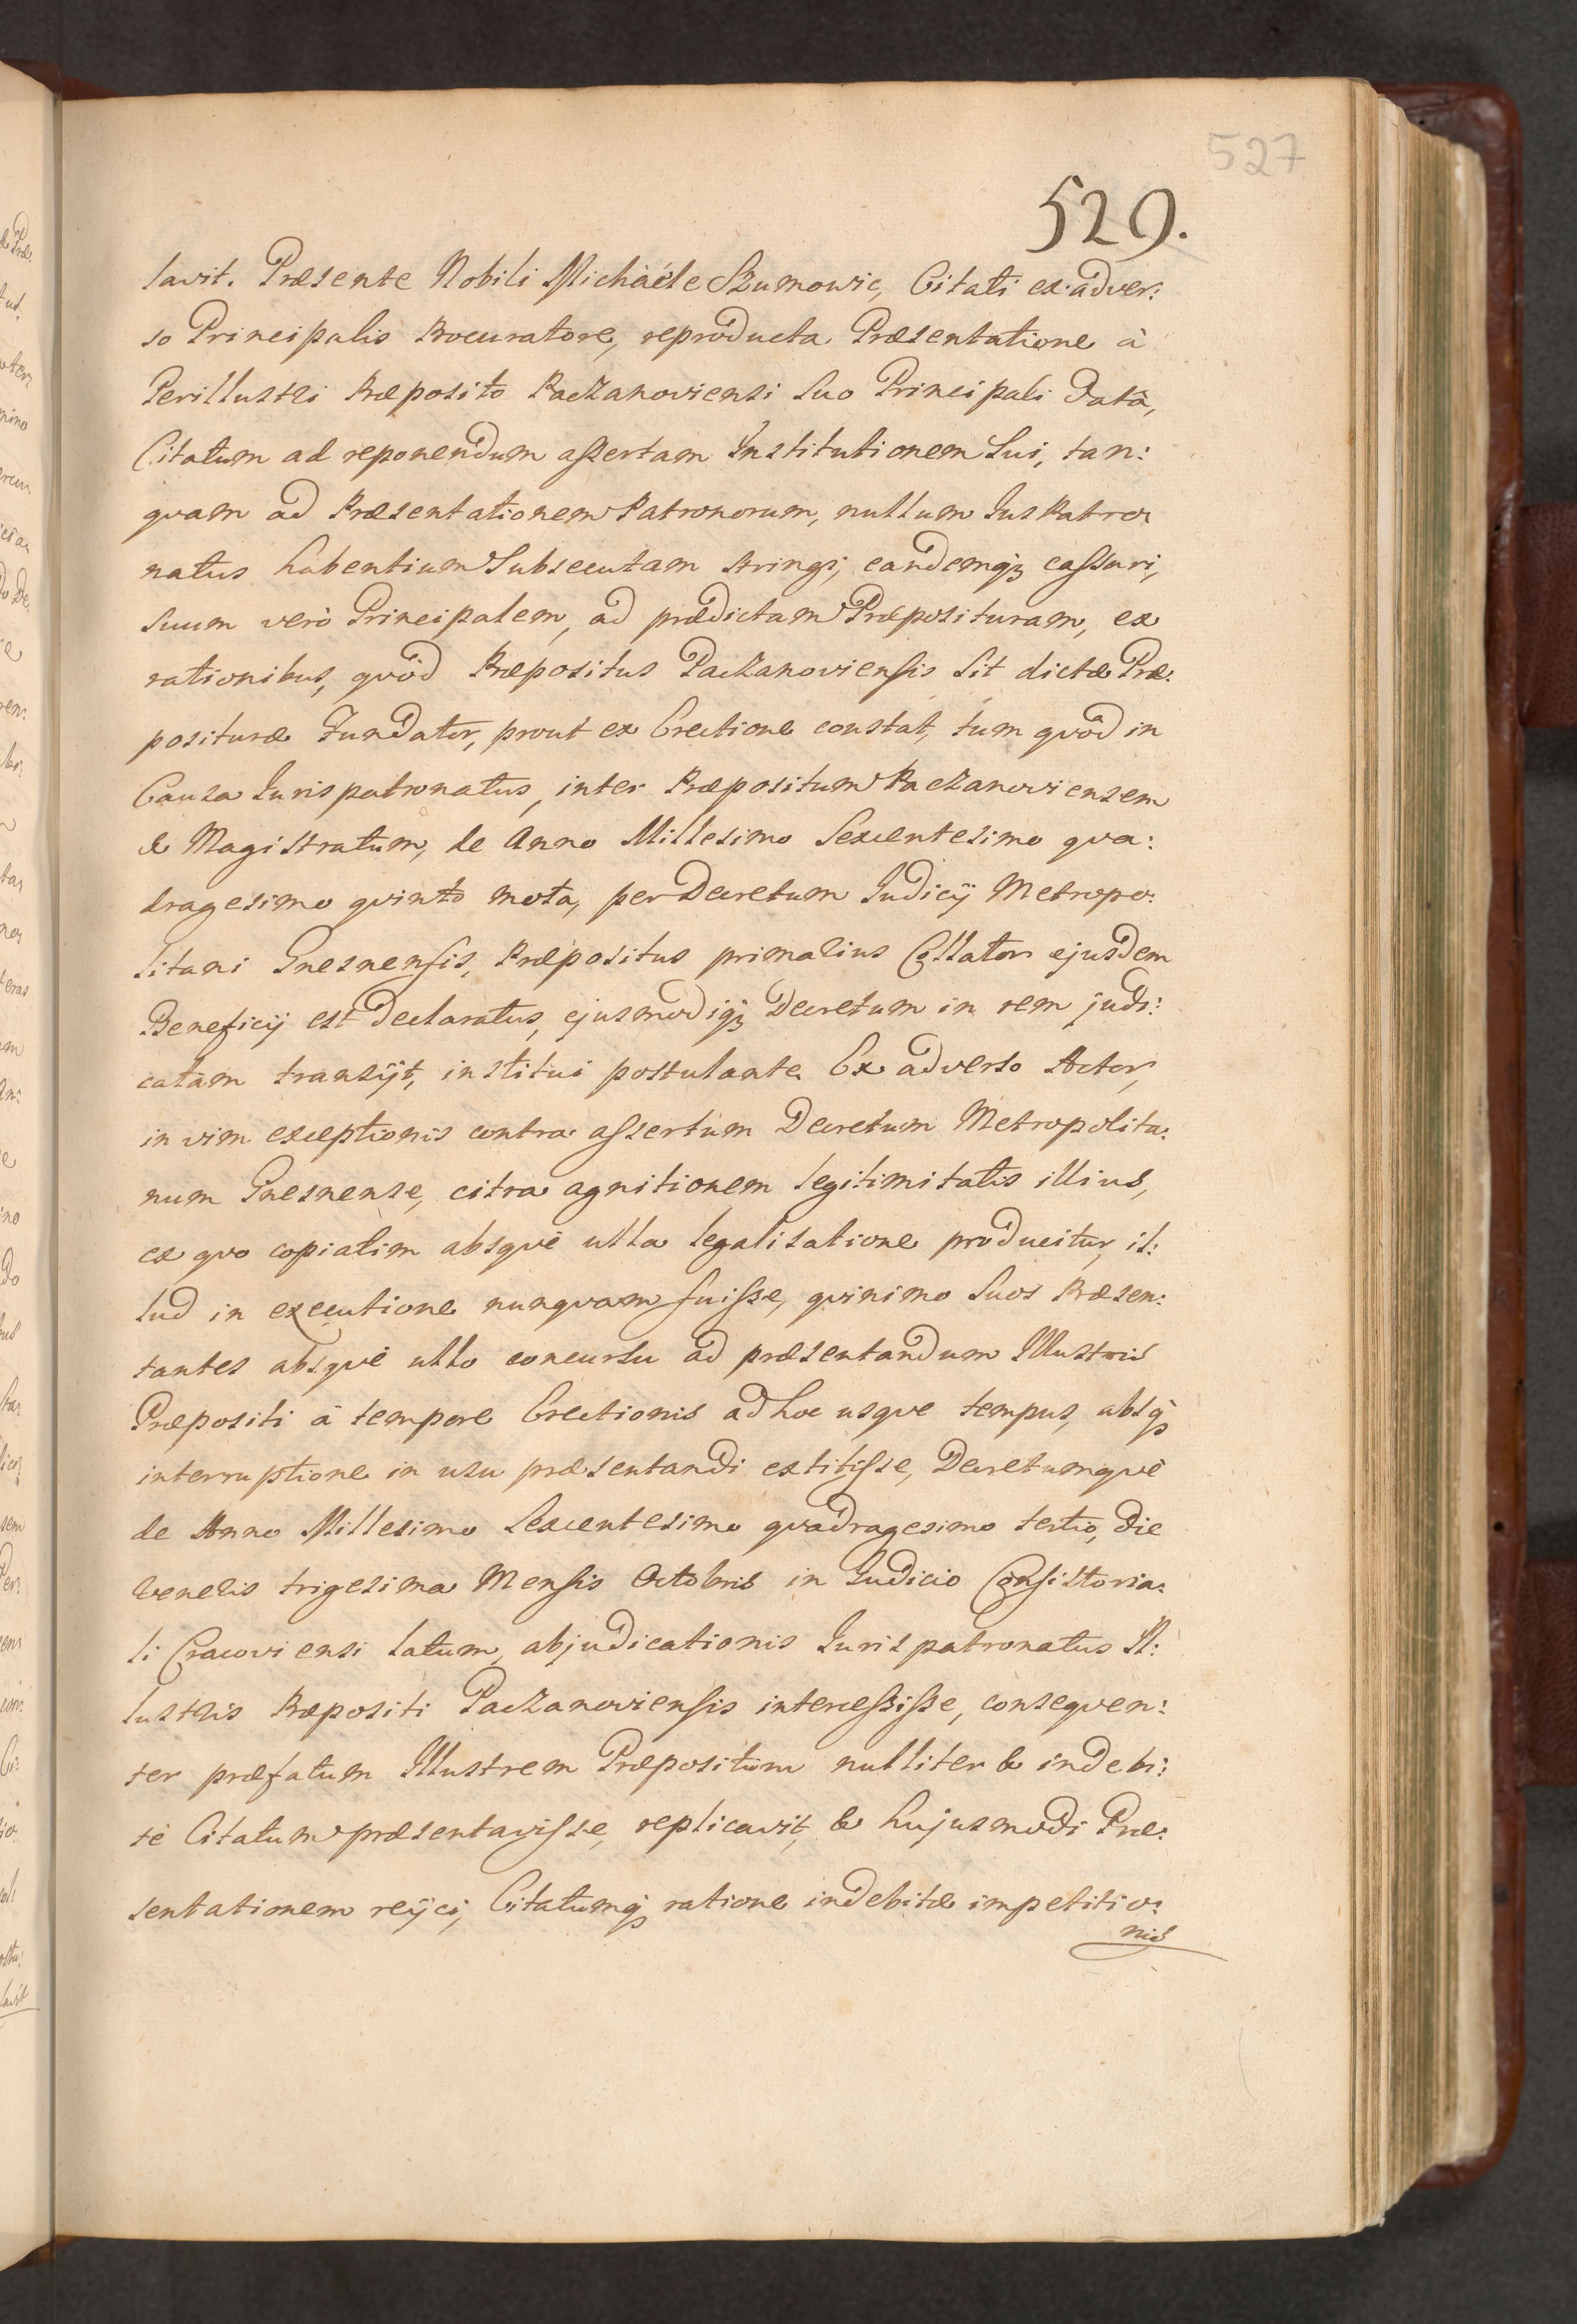 527
529.
lavit. Præsente Nobili Michaéle Szumowic, Citati ex adver:
so Principalis Procuratore, reproducta Præsentatione à
Perillustri Præposito Paczanoviensi Suo Principali datâ,
Citatum ad reponendum assertam Institutionem Sui, tan:
quam ad Præsentationem Patronorum, nullum Jus Patro
natus habentium Subsecutam stringi, eandemq3 cassari,
Suum verò Principalem, ad prædictam Præposituram, ex
rationibus, quòd Præpositus Paczanoviensis Sit dictæ Præ:
posituræ Fundator, prout ex Erectione constat, tum quòd in
Causa Jurispatronatus, inter Præpositum Paczanoviensem
& Magistratum, de Anno Millesimo Sexcentesimo qua:
dragesimo quinto mota, per Decretum Judicij Metropo:
litani Gnesnensis, Præpositus primalius Collator ejusdem
Beneficij est declaratus, ejusmodiq3 Decretum in rem judi:
catam transijt, institui postulante. Ex adverso Actor,
in vim exceptionis contra assertum Decretum Metropolita:
num Gnesnense, citra agnitionem legitimitatis illius,
ex quo copiatim absquè ulla legalisatione producitur, il:
lud in executione nunquam fuisse, quinimo Suos Præsen:
tantes absquè ullo concursu ad præsentandum Illustris
Præpositi à tempore Erectionis ad hoc usque tempus, absq3
interruptione in usu præsentandi extitisse, Decretumquè
de Anno Millesimo Sexcentesimo quadragesimo tertio, die
Veneris trigesima Mensis Octobris in Judicio Consistoria:
li Cracoviensi latum, abjudicationis Jurispatronatus Il:
lustris Præpositi Paczanoviensis intercessisse, consequen:
ter præfatum Illustrem Præpositum nulliter & indebi:
tè Citatum præsentavisse, replicavit, & hujusmodi Præ:
sentationem reijci, Citatumq3 ratione indebitæ impetitio:
nis